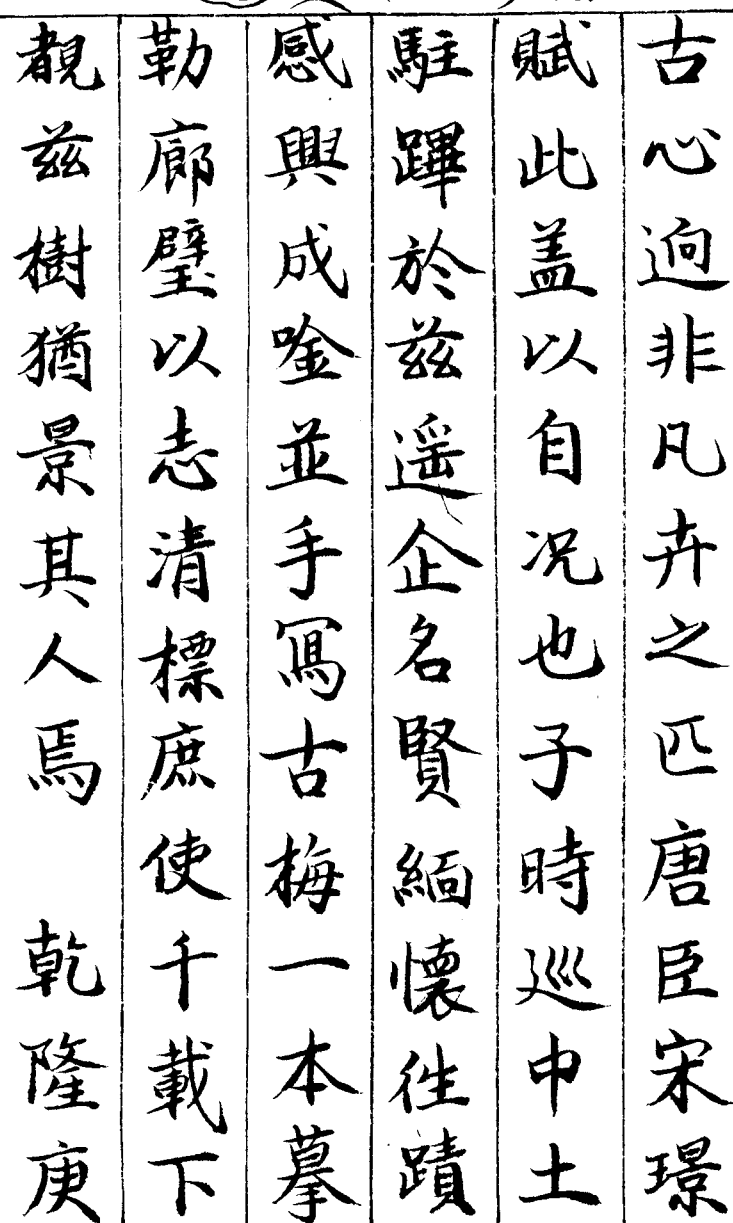 古心逈非凡卉之匹唐臣宋璟
賦此盖以自况也予時巡中土
駐蹕於兹遥企名賢緬懷徃蹟
感興成唫並手寫古梅一本摹
勒廊壁以志清標庶使千載下
覩兹樹猶景其人焉 乾隆庚